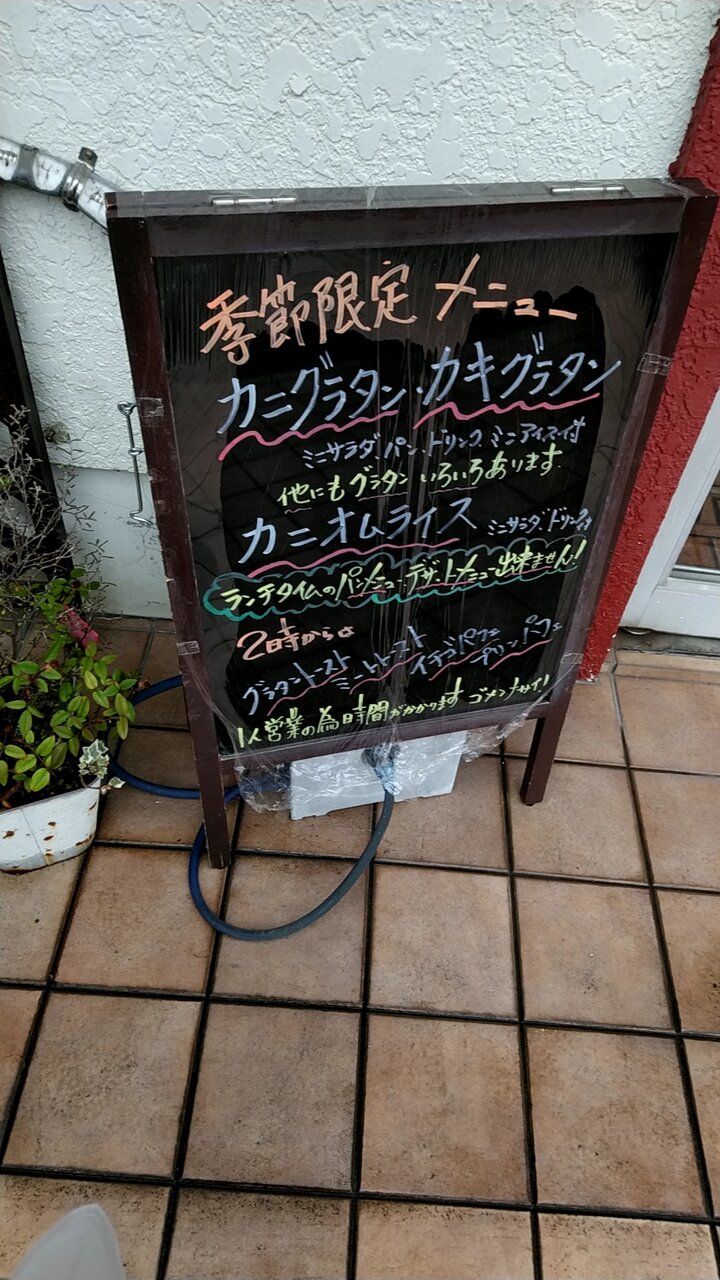 季節限定 メニュー
カニグラタン・カキグラタン
ミニサラダ パン ドリンク ミニアイス付
他にもグラタンいろいろあります
カニオムライス ミニサラダ ドリンク付
ランチタイムのパンメニュー・デザートメニュー出来ません!
2時から
グラタントースト ミートトースト イチゴパフェ プリンパフェ
1人営業の為時間がかかります ゴメンナサイ!